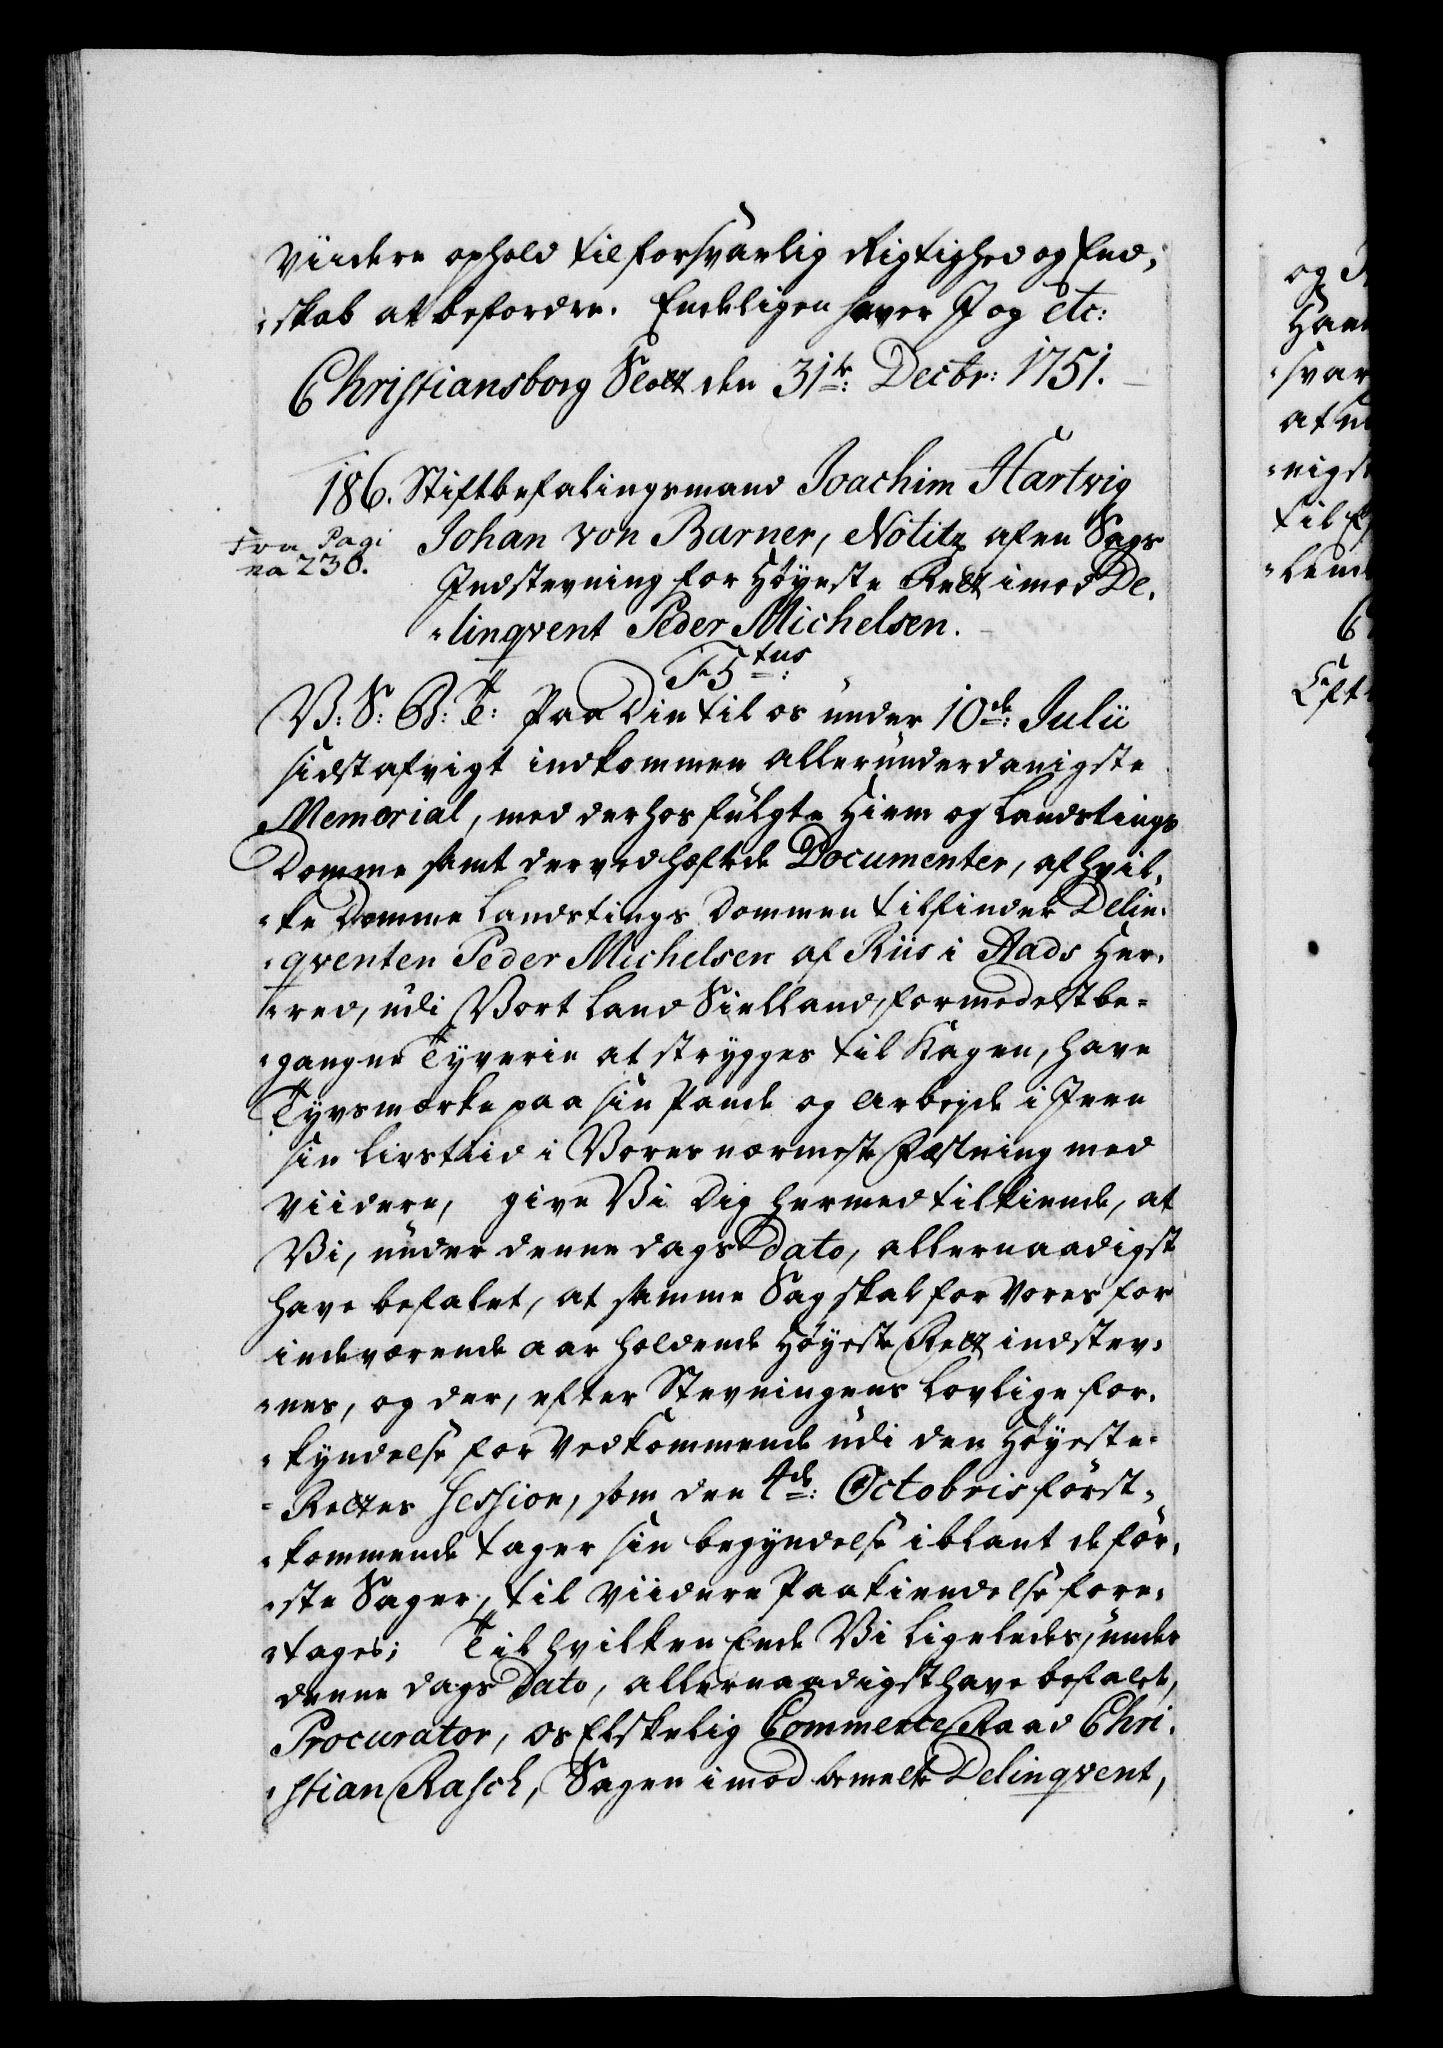 Viidere ophold til forsvarlig Rigtighed og End,
:skab at befordre. Endeligen haver J og etc:
Christiansborg Slott den 31te: Decbr: 1751.
186. Stiftbefalingsmand Joachim Hartvig
Johan von Barner, Notitz af en Sags
Fra Pagi
na 230.
Indstevning for Høyeste Rett imod De,
:linqvent Peder Michelsen.
F 5tus:
V: S: G: T: Paa Din til os under 10de: Julii
sidst afvigt indkommen allerunderdanigste
Memorial, med derhos fulgte Hiem og Landstings
Domme samt derved hæftede Documenter, af hvil,
:ke Domme Landstings Dommen tilfinder Delin,
:qventen Peder Michelsen af Riis i Aads Her,
:red, udi Vort Land Sielland, formedelst be-
:gangne Tyverie at strygges til Kagen, have
Tyvsmærke paa sin Pande og arbejde i Jern
sin Livstiid i Vores nærmeste Fæstning med
Viidere, give Vi Dig hermed tilkiende, at
Vi, under denne dags Dato, allernaadigst
have befalet, at samme Sag skal for Vores for
indeværende aar holdende Høyeste Rett indstev,
:nes, og der, efter Stevningens lovlige for,
:kyndelse for Vedkommende udi den Høyeste-
:Rettes Session, som den 4de: Octobris først,
:kommende tager sin begyndelse iblant de før,
:ste Sager, til Viidere Paakiendelse fore,
:tages; Til hvilken Ende Vi ligeledes, under
denne dags Dato, allernaadigst have befalet,
Procurator, os Elskelig Commerce Raad Chri,
:stian Rasch, Sagen imod bemelte Delinqvent,